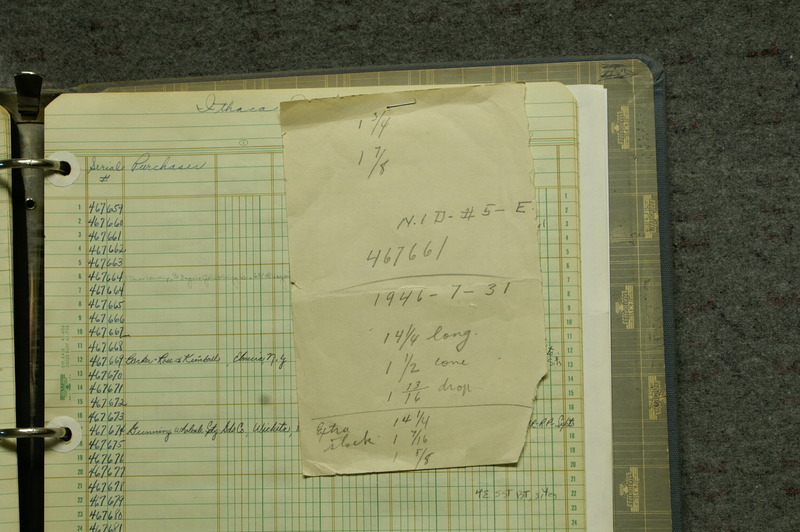 Ithaca
Serial # Purchaser
1 467659
2 467660
3 467661
4 467662
5 467663
6 467664
7 467664
8 467665
9 467666
10 467667
11 467668
12 467669 Parker-Rose & Kimball, Elmira, N.Y
13 467670
14 467671
15 467672
16 467673
17 467674 Gunning Wholesale Spg Gds Co, Wichita,
18 467675
19 467676
20 467677
21 467678
22 467679
23 467680
24 467681
1 3/4
1 7/8
N.I D- #5- E
467661
1946-7-31
14 1/4 long.
1 1/2 cone
1 13/16 drop
Extra stock 14 1/4
1 7/16
1 5/8